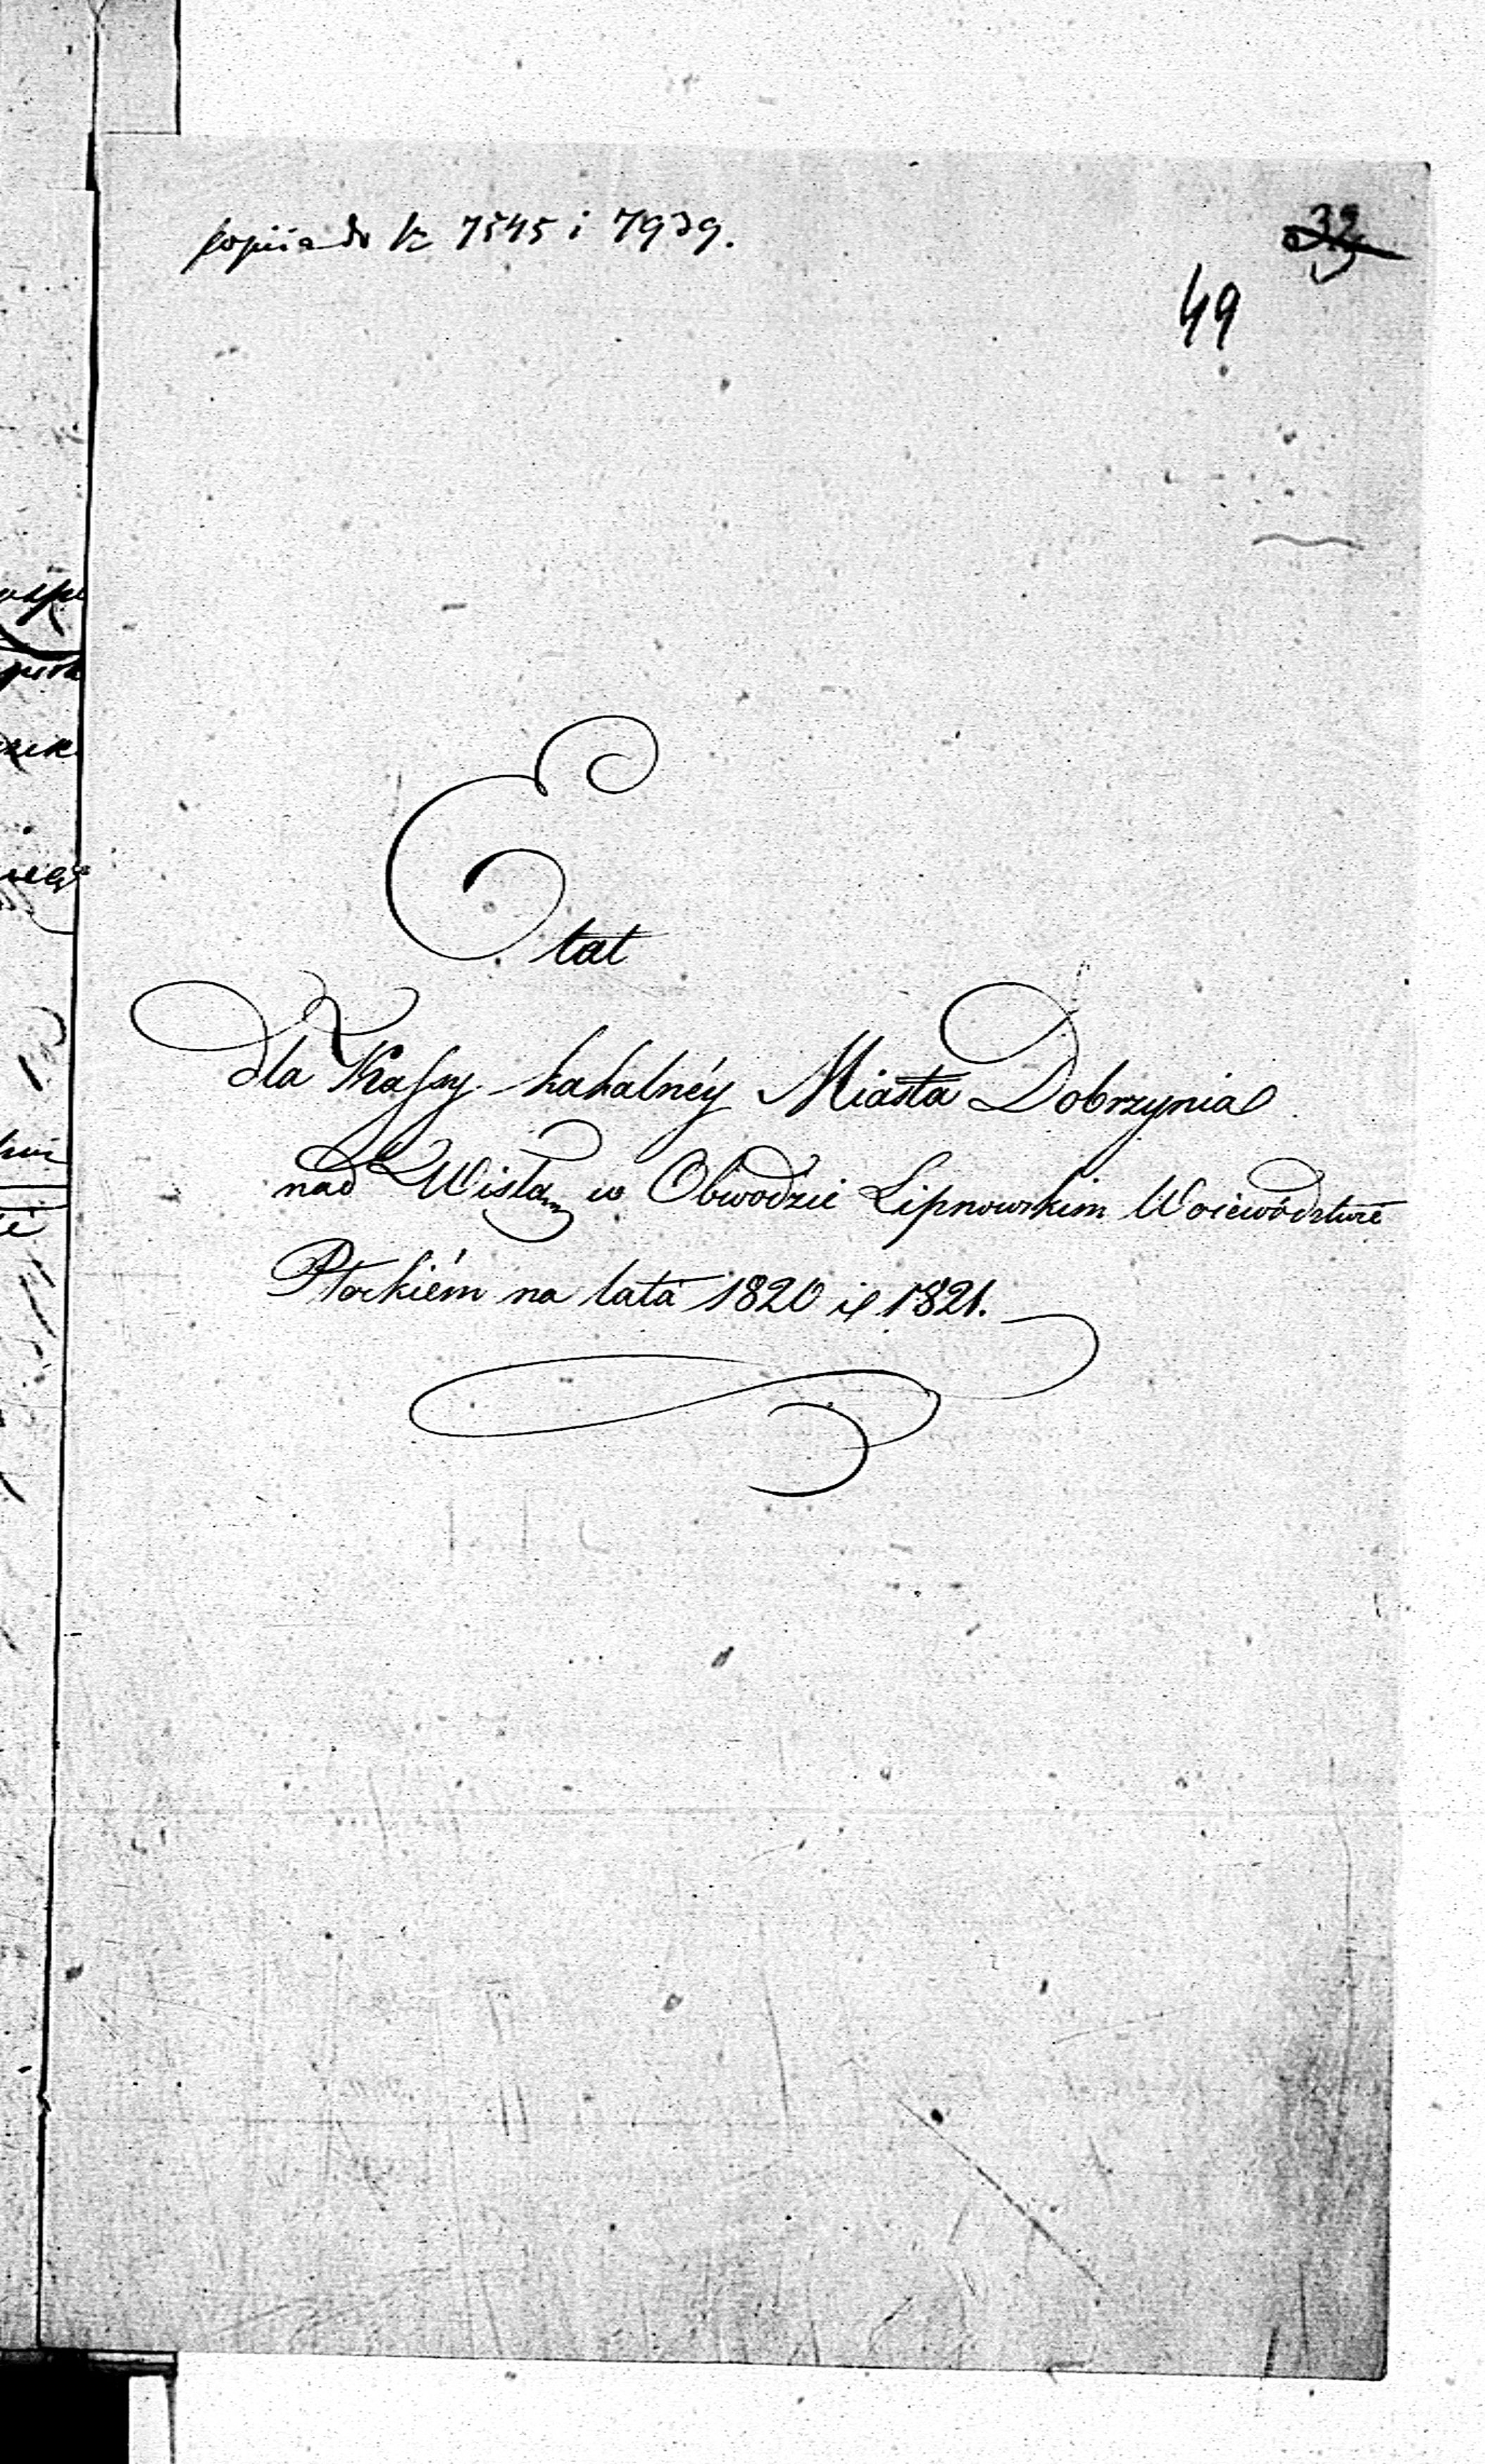 kopiia do Nr 7545 i 7939.
32
49
Etat
dla Kassy kahalnéy Miasta Dobrzynia
nad Wisłą w Obwodzie Lipnowskim Woiewództwie
Płockiém na lata 1820 i 1821.